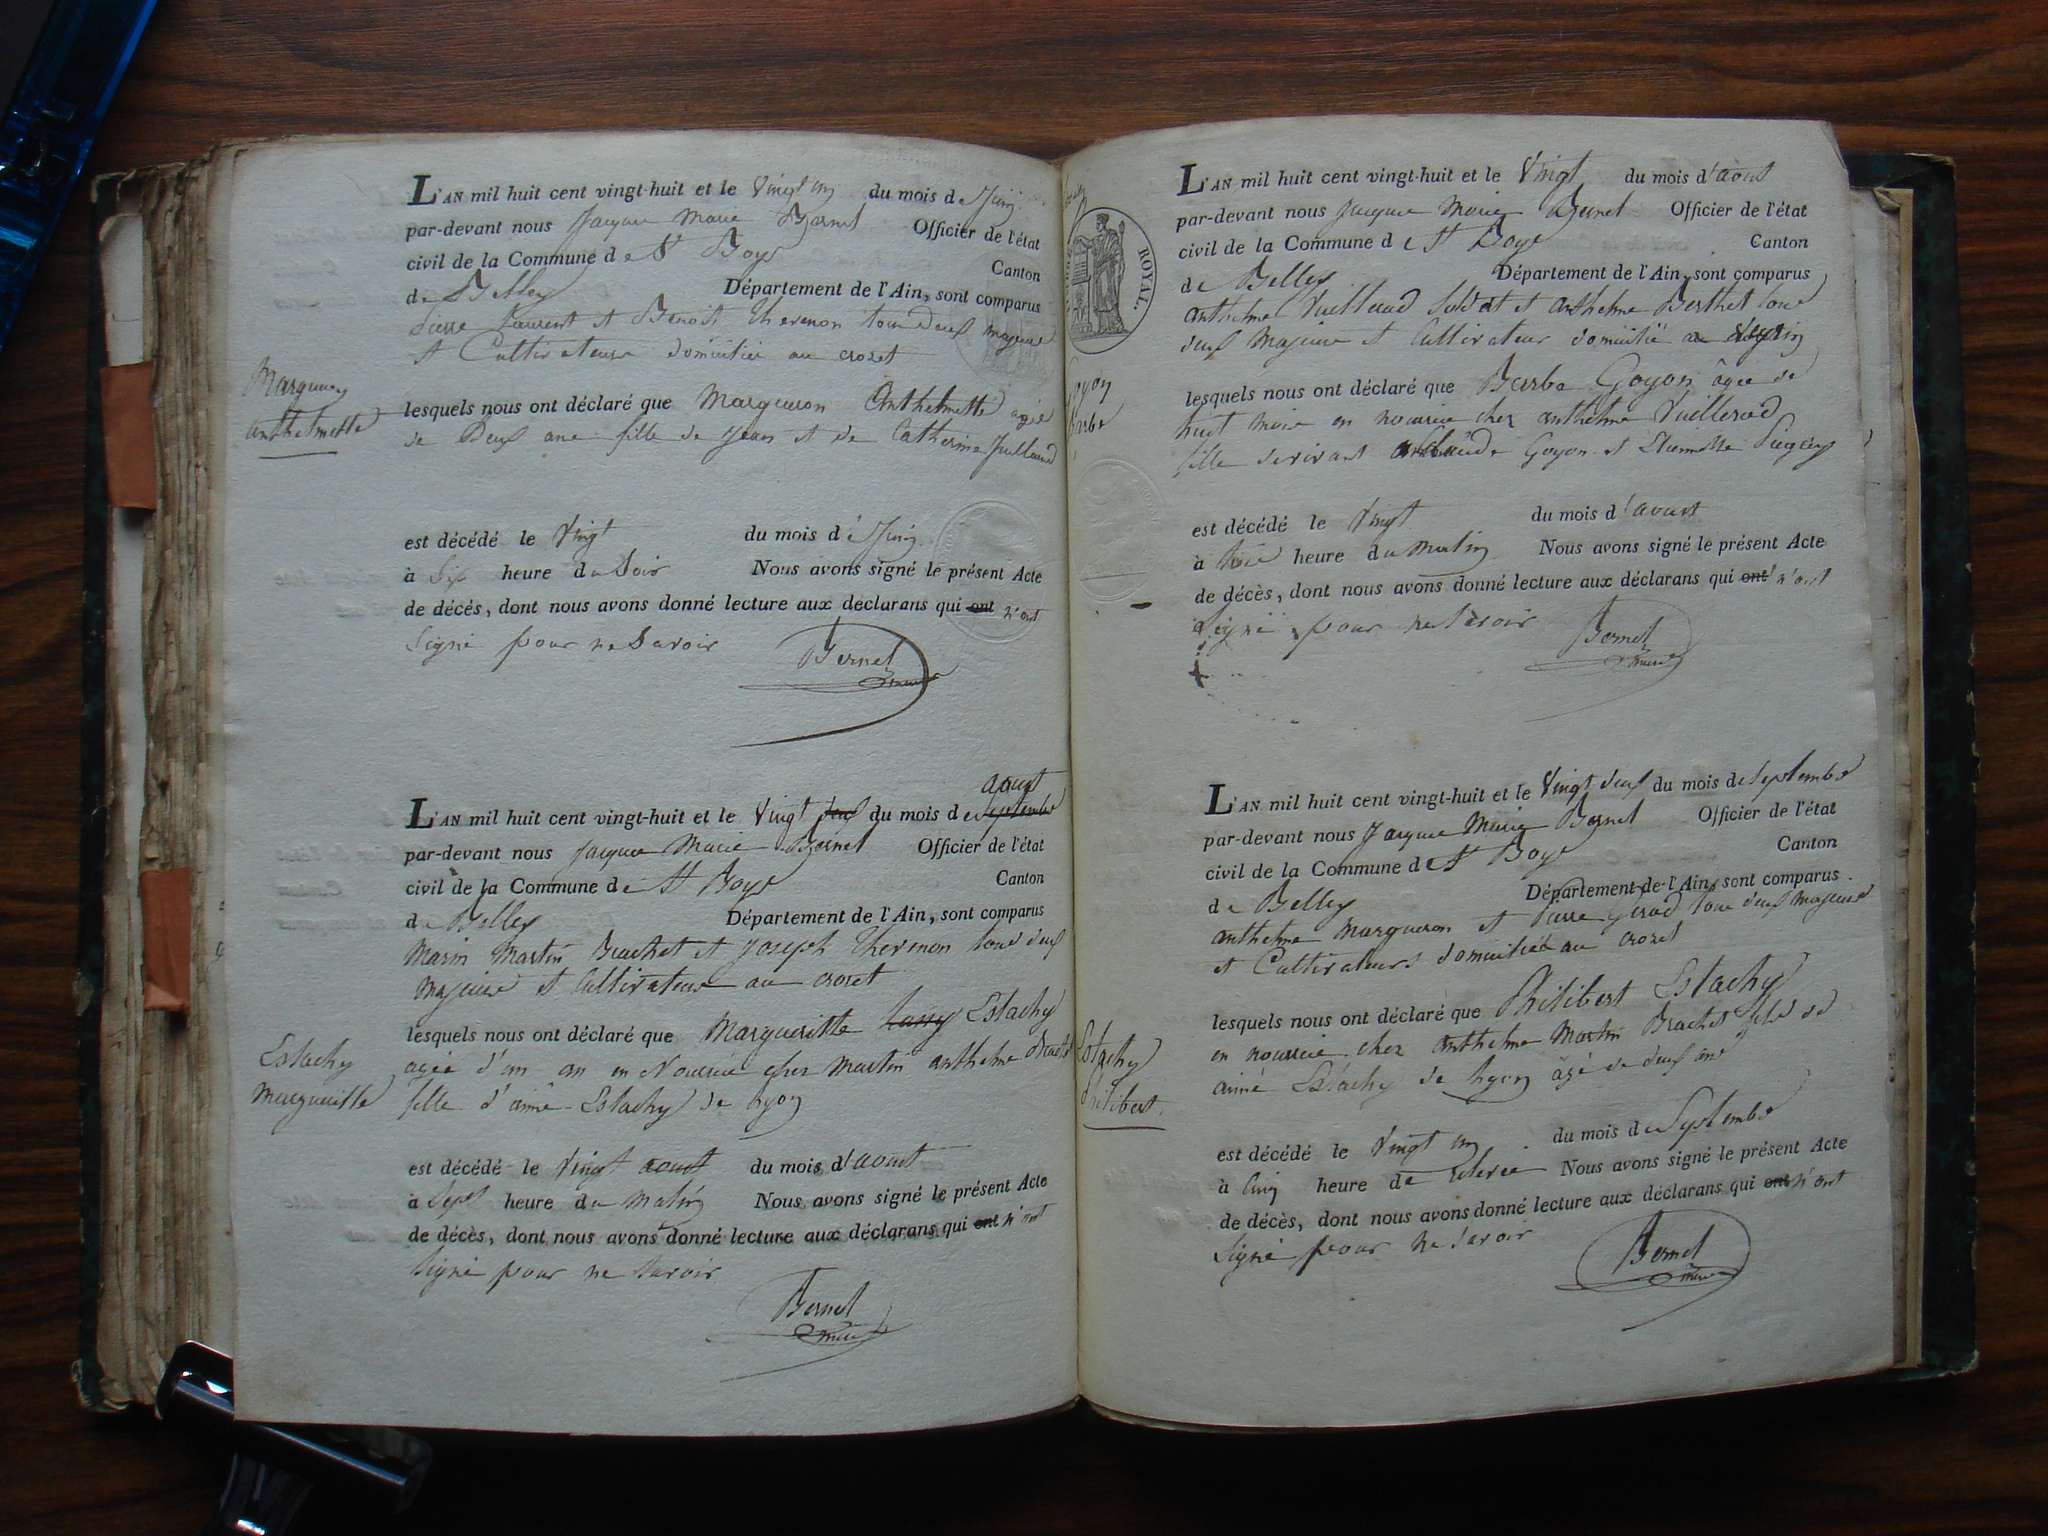 L'AN mil huit cent vingt-huit et le Vingt un du mois de Juin
par-devant nous Jacque Marie Bornet Officier de l'état
civil de la Commune de St Boys Canton
de Belley Département de l'Ain, sont comparus
Pierre Laurent et Benoit Thevenon tous deux majeurs
et Cultivateurs domicilié au crozet
Marqueron
Anthelmette
lesquels nous ont déclaré que Marqueron Anthelmette agée
de Deux ans fille de Jean et de Catherine
est décédé le Vingt du mois de Juin
à Six heure du Soir Nous avons signé le présent Acte
de décés, dont nous avons donné lecture aux déclarans qui ont n'ont
Signé pour ne Savoir
Bornet
maire
L'AN mil huit cent vingt-huit et le Vingt deux du mois de septembre aoust
par-devant nous Jacque Marie Bornet Officier de l'état
civil de la Commune de St Boys Canton
de Belley Département de l'Ain, sont comparus
Marin Martin Brachet et Joseph Thevenon tous deux
majeurs et Cultivateurs au crozet
lesquels nous ont déclaré que Margueritte Estachy
Estachy
Margueritte
agée d'un an en Nourrice chez Martin anthelme Brachet
fille d'aimé Estachy de Lyon
est décédé le Vingt aoust du mois d'aoust
à Sept heure du Matin Nous avons signé le présent Acte
de décès, dont nous avons donné lecture aux déclarans qui ont n'ont
Signé pour ne Savoir
Bornet
maire
ROYAL.
L'AN mil huit cent vingt-huit et le Vingt du mois d'aout
par-devant nous Jacque Marie Bornet Officier de l'état
civil de la Commune de St Boys Canton
de Belley Département de l'Ain, sont comparus
anthelme Vuilleroud Soldat et anthelme Berthet tous
deux Majeurs et Cultivateur domicilié
Goyon
Barbe
lesquels nous ont déclaré que Barbe Goyon âgée de
huit mois en nourrice chez anthelme Vuilleroud
fille Goyon et
est décédé le Vingt du mois d'aoust
à heure du Matin Nous avons signé le présent Acte
de décès, dont nous avons donné lecture aux déclarans qui ont n'ont
signé pour ne Savoir
Bornet
maire
L'AN mil huit cent vingt-huit et le Vingt deux du mois de Septembre
par-devant nous Jacque Marie Bornet Officier de l'état
civil de la Commune de St Boys Canton
de Belley Département de l'Ain, sont comparus
anthelme Marqueron et Pierre tous deux majeurs
et Cultivateurs domiciliée au crozet
lesquels nous ont déclaré que Philibert Estachy
Estachy
Philibert
en nourrice chez anthelme Martin Brachet fils de
aimé Estachy de Lyon âgé de deux ans
est décédé le Vingt un du mois de Septembre
à Cinq heure de relevée Nous avons signé le présent Acte
de décès, dont nous avons donné lecture aux déclarans qui ont n'ont
Signé pour ne Savoir
Bornet
maire